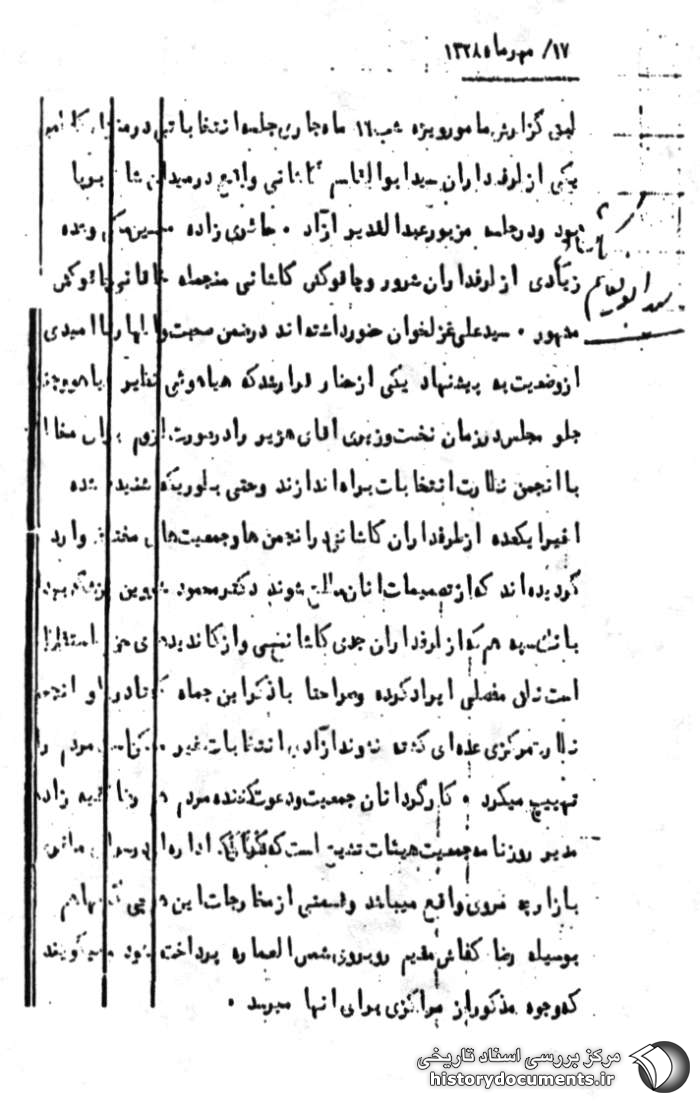 ۱۷/ مهرماه ۱۳۲۸
طبق گزارش مامور ویژه شب ۱۶ ماه جاری جلسه انتخاباتی در
یکی از طرفداران سید ابوالقاسم کاشانی واقع در میدان شاه برپا
بود و در جلسه مزبور عبدالقدیر آزاد . حائری زاده حسین مکی وعده
زیادی از طرفداران شرور و چاقوکش کاشانی منجمله چاقوکش
مشهور . سیدعلی غزلخوان حضور داشته اند در ضمن صحبت و اظهار نا امیدی
از وضعیت به پیشنهاد یکی از حضار قرار شد که هیاهوئی نظیر
جلو مجلس در زمان نخست وزیری آقای هژیر را در صورت لزوم برای
با انجمن نظارت انتخابات براه اندازند و حتی بطوریکه شنیده شده
اخیرا یکعده از طرفداران کاشانی در انجمن ها و جمعیت های مختلف وارد
گردیده اند که از تصمیمات آنان مطلع شوند دکتر محمود شروین
که از طرفداران جدی کاشانی و از کاندیدهای حزب استقلال
است نطق مفصلی ایراد کرده و صراحتا با ذکر این جمله و انجمن
نظارت مرکزی عده ای آزادی انتخابات غیر مردم را
تهییج میکرد . کارگردانان جمعیت و دعوت کننده مردم رضا زاده
مدیر روزنامه جمعیت هیئات است که اداره
بازارچه واقع میباشد و قسمتی از مخارجات این هم
بوسیله رضا کفاش مقیم روبروی شمس العماره پرداخت میشود میگویند
که وجوه مذکور از مراکزی برای آنها میرسد .
سید ابوالقاسم
کاشانی
مرکز بررسی اسناد تاریخی
historydocuments.ir